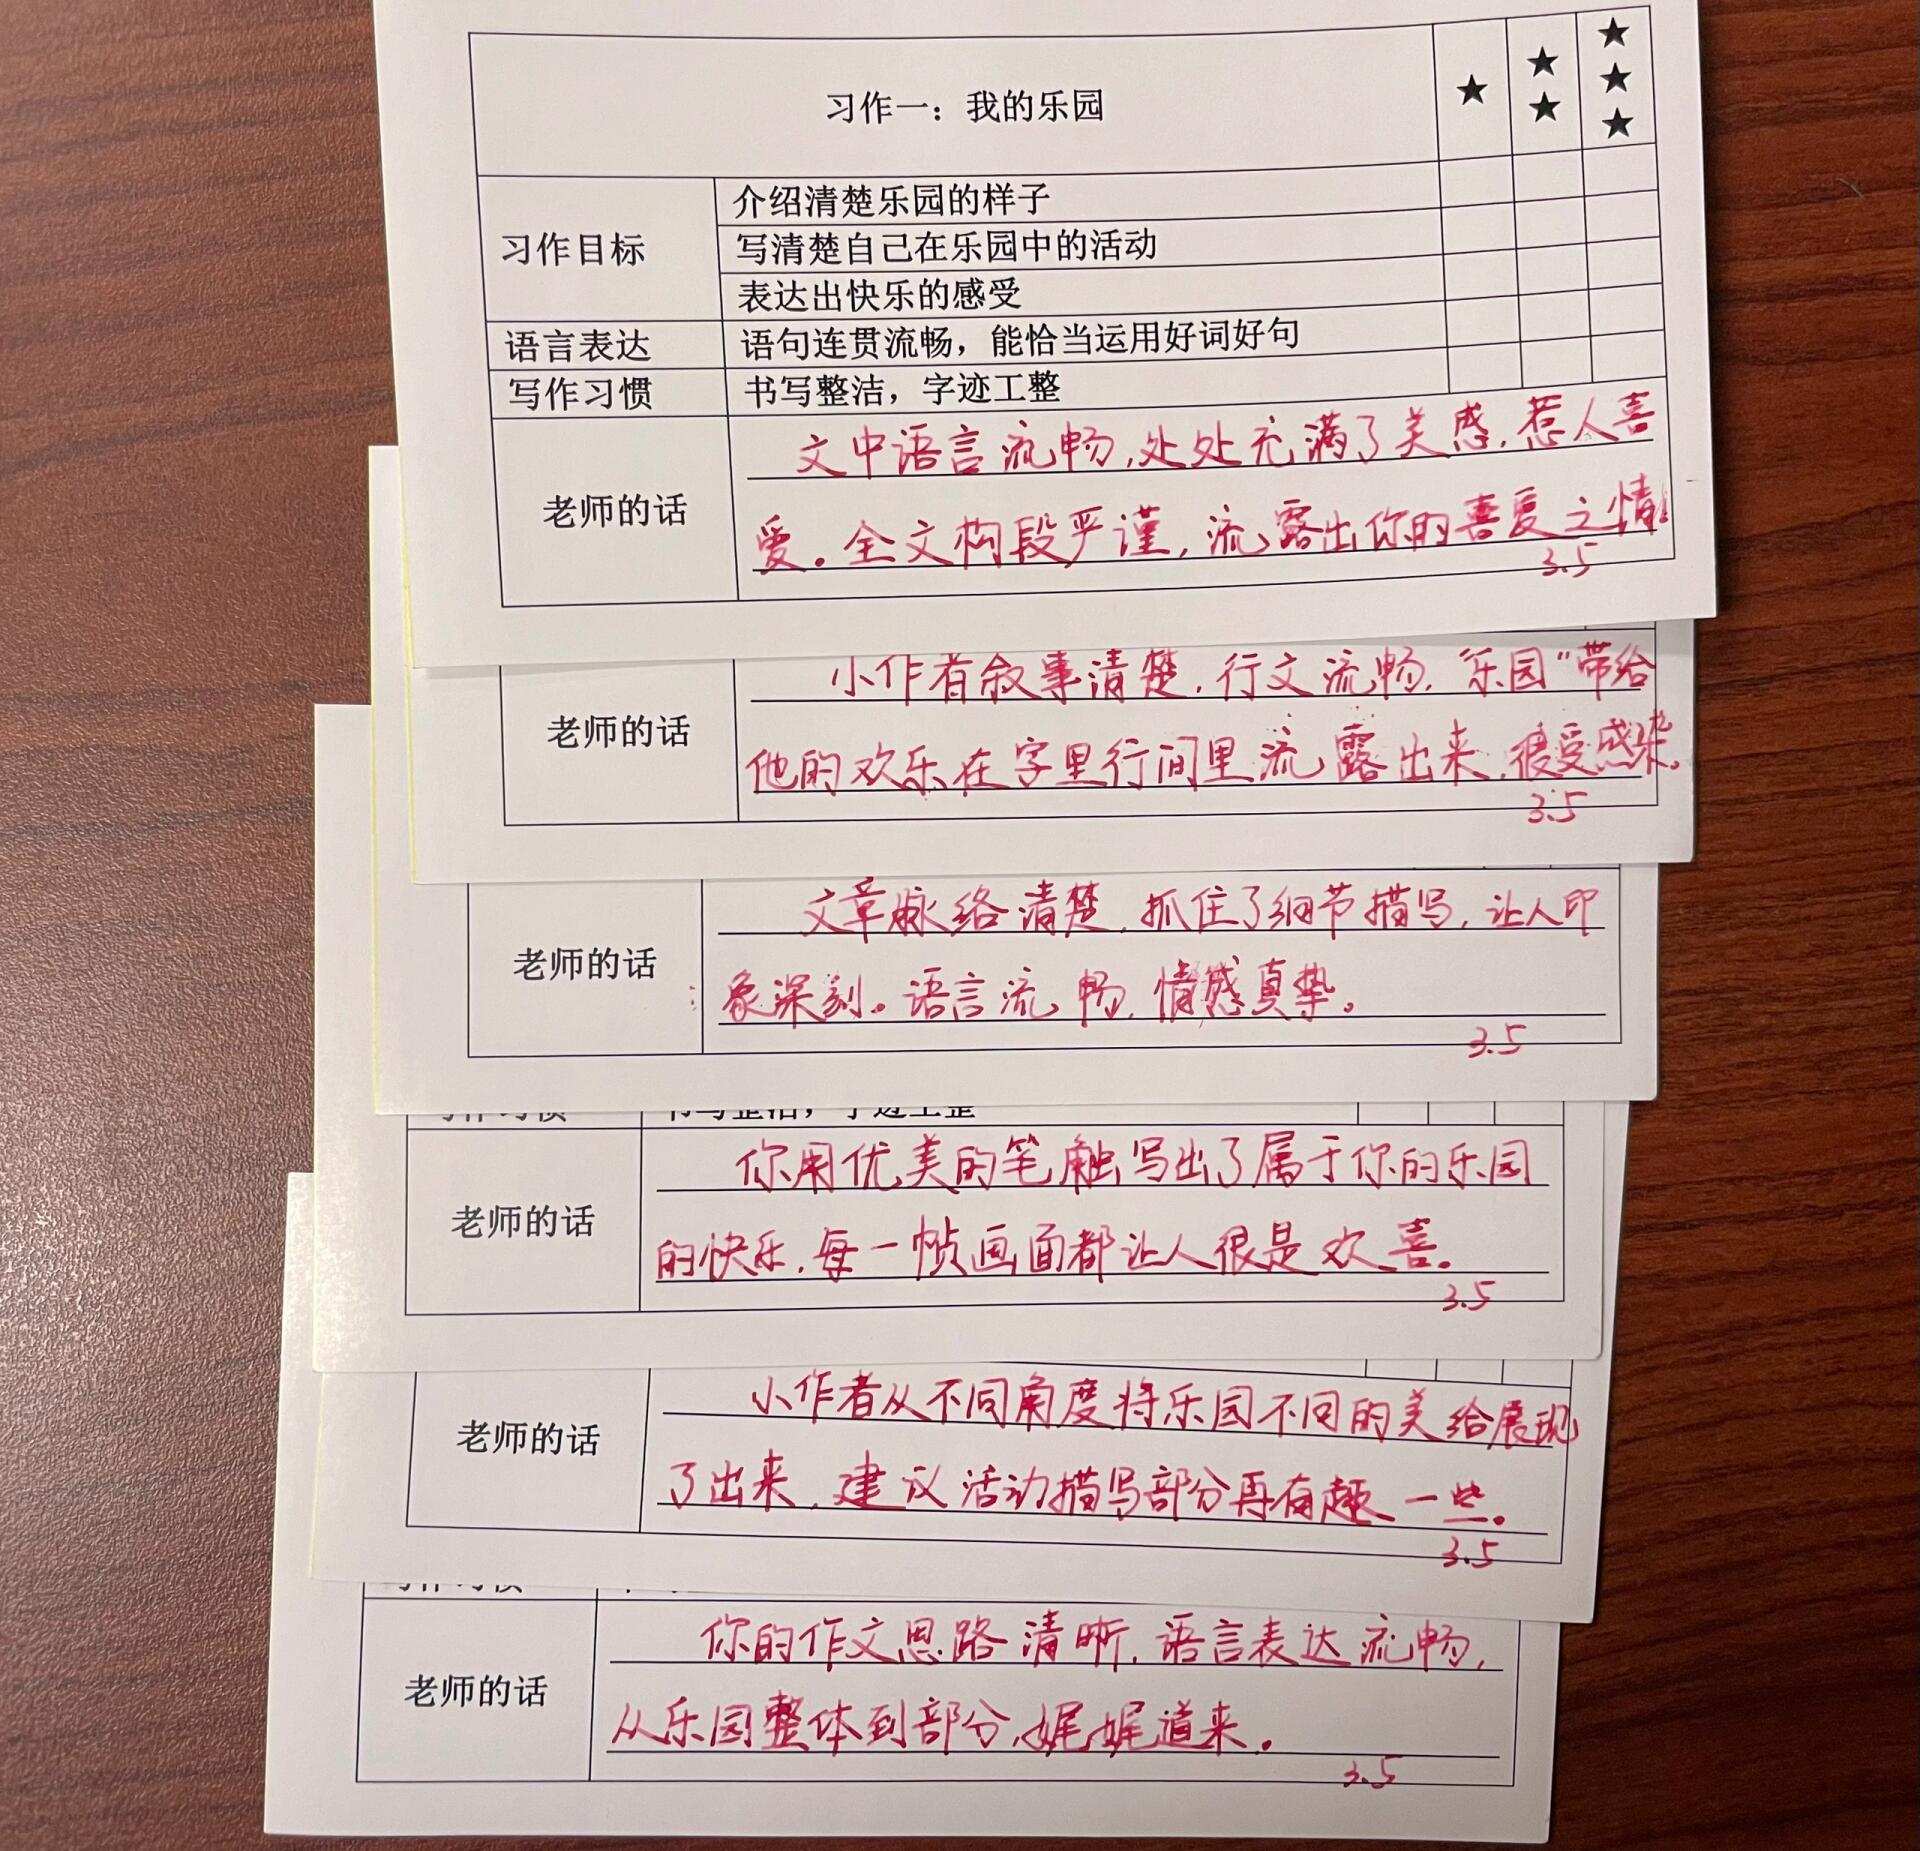 习作一：我的乐园
★
★★
★★★
习作目标
介绍清楚乐园的样子
写清楚自己在乐园中的活动
表达出快乐的感受
语言表达
语句连贯流畅，能恰当运用好词好句
写作习惯
书写整洁，字迹工整
老师的话
文中语言流畅，处处充满了美感，惹人喜
爱。全文构段严谨，流露出你的喜爱之情！
3.5
老师的话
小作者叙事清楚，行文流畅，“乐园”带给
他的欢乐在字里行间里流露出来，很受感染。
3.5
老师的话
文章脉络清楚，抓住了细节描写，让人印
象深刻。语言流畅，情感真挚。
3.5
写作习惯
书写整洁，字迹工整
老师的话
你用优美的笔触写出了属于你的乐园
的快乐，每一帧画面都让人很是欢喜。
3.5
老师的话
小作者从不同角度将乐园不同的美给展现
了出来，建议活动描写部分再有趣一些。
3.5
写作习惯
老师的话
你的作文思路清晰，语言表达流畅，
从乐园整体到部分，娓娓道来。
3.5